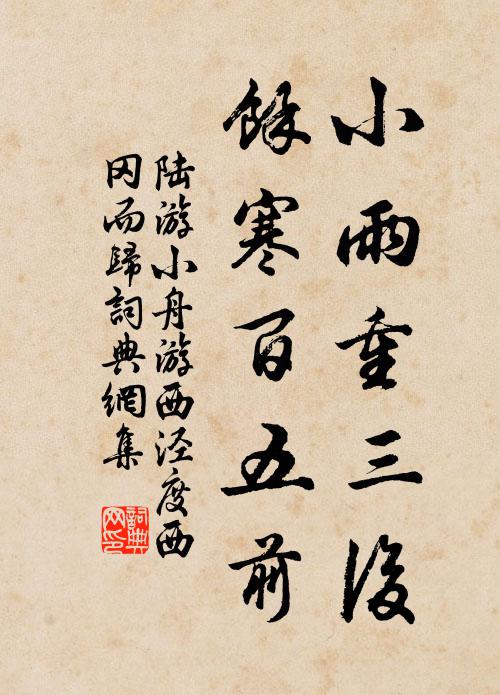 小雨重三後
餘寒百五前
陆游小舟游西泾度西
冈而歸詞典網集
詞典
网印